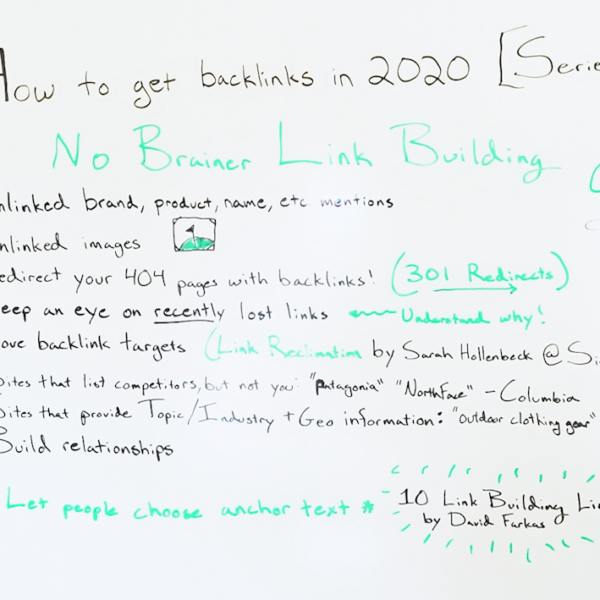 How to get backlinks in 2020 [Serie
No Brainer Link Building
nlinked brand, product, name, etc mentions
nlinked images
edirect your 404 pages with backlinks! (301 Redirects)
eep an eye on recently lost links Understand why!
ove backlink targets (Link Reclimation by Sarah Hollenbeck @Si
ites that list competitors, but not you: "Patagonia" "NorthFace" - Columbia
ites that provide Topic/Industry + Geo information: "outdoor clothing gear"
Build relationships
Let people choose anchor text *
10 Link Building Li
by David Farkas